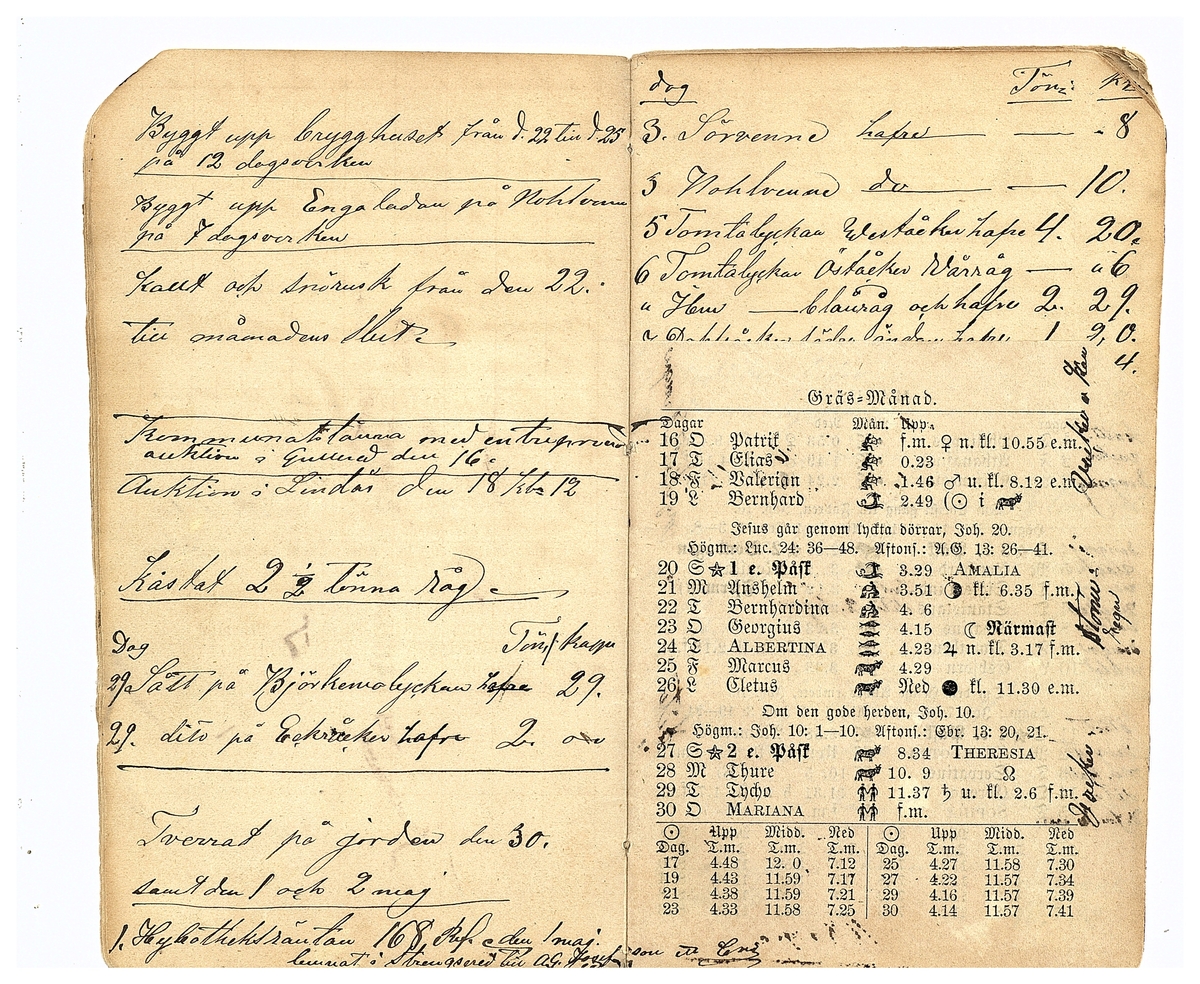 Byggt upp brygghuset från d. 22 till d. 25
på 12 dagsverken
Byggt upp Engaladan på Nohlvenne
på 7 dagsverken
Kallt och snörusk från den 22.
till månadens slut
Kommunalstämma med entreprenad
auktion i Gullered den 16
Auktion i Lindås den 18 kl 12
Kastat 2 ½ tunna Råg
Dag Tön/ Kappa
29 Sått på Björkemolyckan hafre 29.
29. dito på Eckråcker hafre 2
Tverrat på jorden den 30.
samt den 1 och 2 maj
1. Hypotheksräntan 168 Rf. den 1 maj.
lemnat i Strengsered till A.G. Josef son
dag Tön: Kr
3. Sörvenne hafre — — 8
3 Nohlvenne do — — 10.
5 Tomtalyckan Weståcker hafre 4. 20.
6 Tomtalyckan Öståcker Vårråg — " 6
" Hem — blanråg och hafre 2. 29.
södra ändan hafre 1 2,0.
4.
Gräs-Månad.
Dagar Mån. Upp.
16 O Patrik f.m. ♀ n. kl. 10.55 e.m.
17 T Elias 0.23
18 F Valerian 1.46 ♂ u. kl. 8.12 e.m.
19 L Bernhard 2.49 (☉ i ♉
Jesus går genom lyckta dörrar, Joh. 20.
Högm.: Luc. 24: 36—48. Aftons.: A.G. 13: 26—41.
20 S ☆ 1 e. Påsk 3.29 AMALIA
21 M Anshelm 3.51 kl. 6.35 f.m.
22 T Bernhardina 4. 6
23 O Georgius 4.15 ☾ Närmast
24 T ALBERTINA 4.23 ♃ n. kl. 3.17 f.m.
25 F Marcus 4.29
26 L Cletus Ned ● kl. 11.30 e.m.
Om den gode herden, Joh. 10.
Högm.: Joh. 10: 1—10. Aftons.: Ebr. 13: 20, 21.
27 S ☆ 2 e. Påsk 8.34 THERESIA
28 M Thure 10. 9 ☊
29 T Tycho 11.37 ♄ u. kl. 2.6 f.m.
30 O MARIANA f.m.
☉ Upp Midd. Ned ☉ Upp Midd. Ned
Dag. T.m. T.m. T.m. Dag. T.m. T.m. T.m.
17 4.48 12. 0 7.12 25 4.27 11.58 7.30
19 4.43 11.59 7.17 27 4.22 11.57 7.34
21 4.38 11.59 7.21 29 4.16 11.57 7.39
23 4.33 11.58 7.25 30 4.14 11.57 7.41
Vacker
Storm
Regn
Vacker